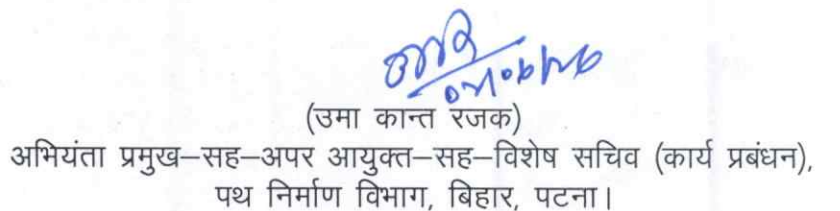 (उमा कान्त रजक)
अभियंता प्रमुख–सह–अपर आयुक्त–सह–विशेष सचिव (कार्य प्रबंधन),
पथ निर्माण विभाग, बिहार, पटना।